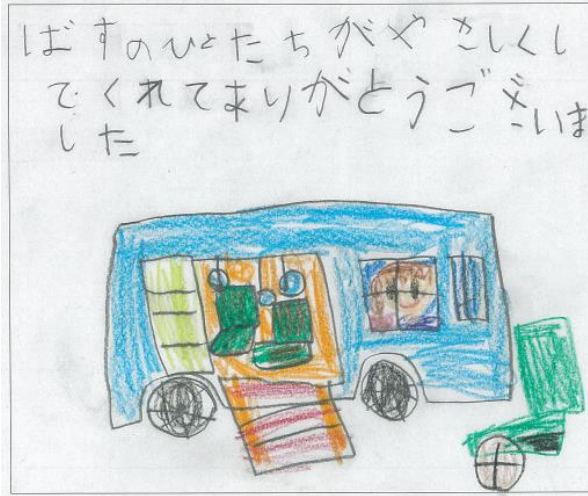 ばすのひとたちがやさしくし
てくれてまりがとうござ­いま
した